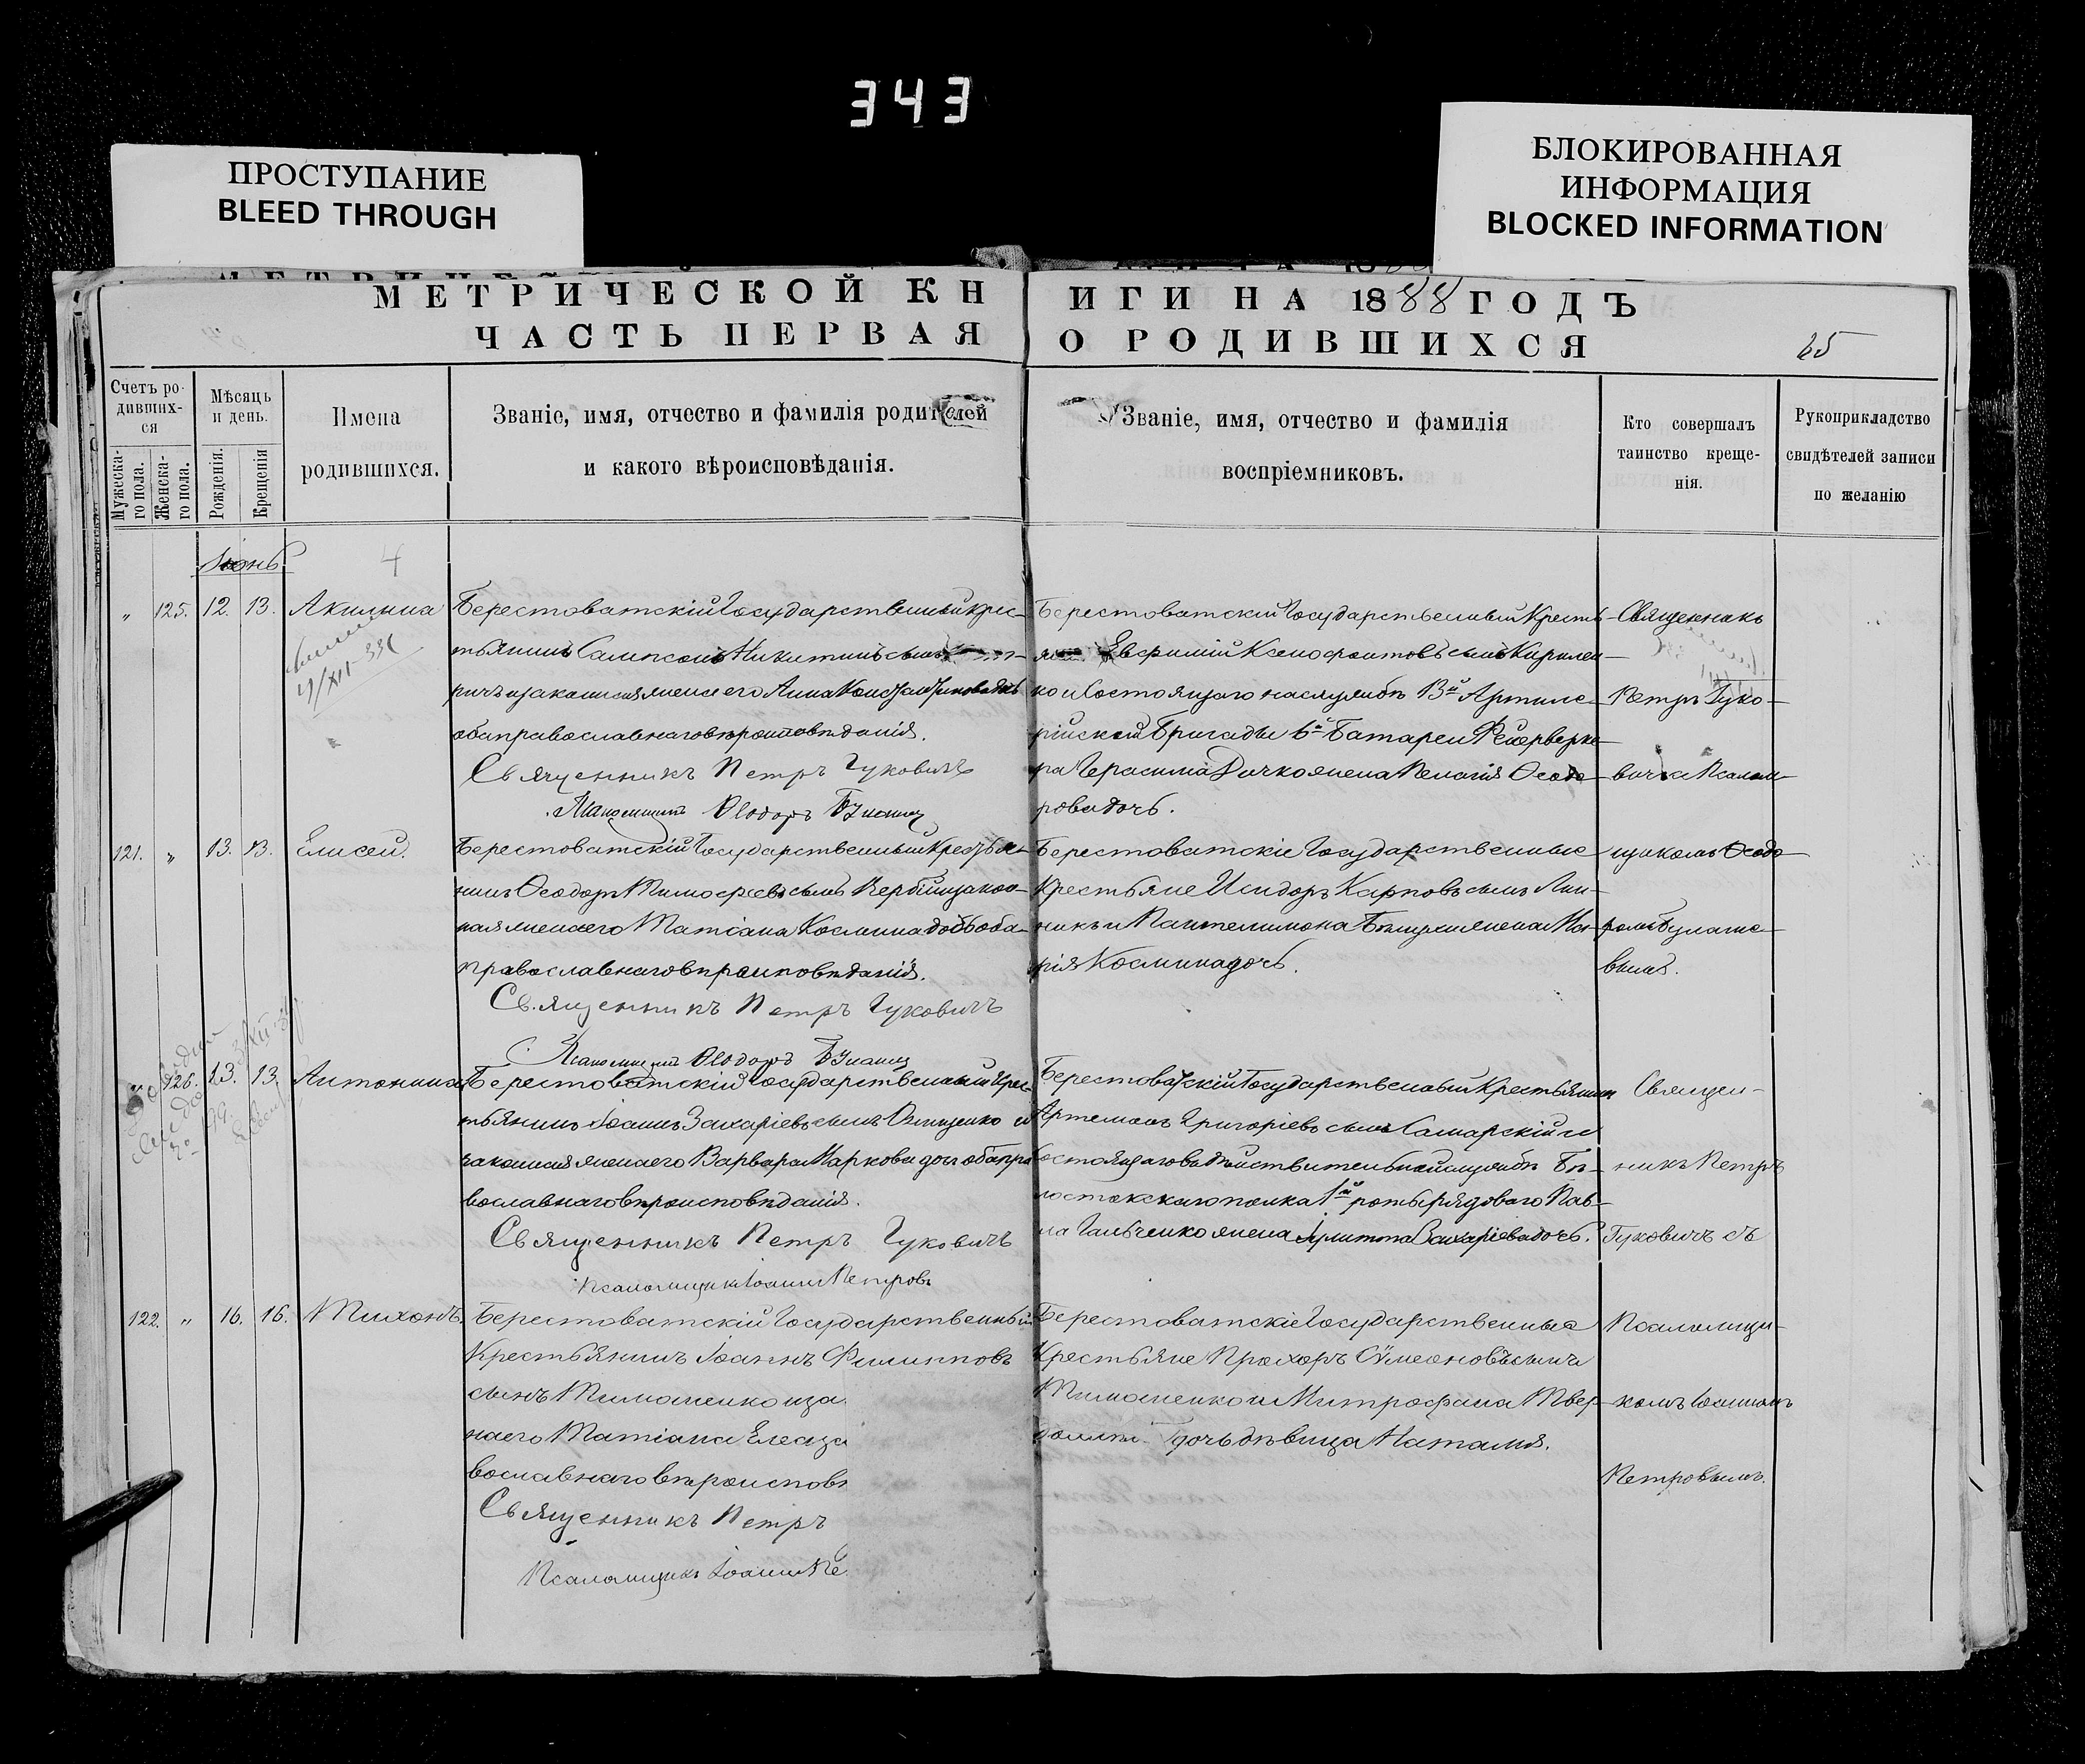 343
ПРОСТУПАНИЕ
BLEED THROUGH
БЛОКИРОВАННАЯ
ИНФОРМАЦИЯ
BLOCKED INFORMATION
МЕТРИЧЕСКОЙ КНИГИ НА 1888 ГОДЪ
ЧАСТЬ ПЕРВАЯ О РОДИВШИХСЯ
65
Счетъ ро-
дивших-
ся
Мужеска-
го пола.
Женска-
го пола.
Мѣсяць
и день.
Рожденія.
Крещенія
Имена
родившихся.
Званіе, имя, отчество и фамилія родителей
и какого вѣроисповѣданія.
Званіе, имя, отчество и фамилія
воспріемниковъ.
Кто совершалъ
таинство креще-
нія.
Рукоприкладство
свидѣтелей записи
по желанію
Іюнь
4
" 125. 12. 13. Акилина
Берестоватскій Государственный Крес-
тьянинъ Сампсонъ Никитинъ сынъ
законная жена его Анна Константинова дочь
оба православнаго вѣроисповѣданія.
Священникъ Петръ Гуковичъ
Ѳеодоръ
Берестоватскій Государственный Кресть-
Евфимій Ксенофонтовъ сынъ Кирилен-
ко и Состоящаго на службѣ 13й Артиле-
рійской Бригады 6й Батареи Фейерверке-
ра Герасима Дичко жена Пелагія Ѳеодо-
рова дочь.
Священникъ
Петръ Гуко-
вичъ съ Псалом-
щикомъ Ѳеодо-
ромъ
121. " 13. 13. Елисей.
Берестоватскій Государственный Крестья-
нинъ Ѳеодоръ Тимофеевъ сынъ и закон-
ная жена его Татіана Космина дочь оба
православнаго вѣроисповѣданія.
Священникъ Петръ Гуковичъ
Ѳеодоръ
Берестоватскіе Государственные
Крестьяне Исидоръ Карповъ сынъ Лин-
никъ и Пантелимона жена Ма-
рія Космина дочь.
" 126. 13. 13. Антонина
Берестоватскій Государственный Крес-
тьянинъ Іоаннъ Захаріевъ сынъ Онищенко и
законная жена его Варвара Маркова дочь оба пра-
вославнаго вѣроисповѣданія.
Священникъ Петръ Гуковичъ
Псаломщикъ Іоаннъ Петровъ
Берестоватскій Государственный Крестьянин
Артемонъ Григоріевъ сынъ Самарскій и
Состоящаго въ дѣйствительной службѣ Бѣ-
лостокскаго полка 1й роты рядового Пав-
ла Гальченко жена Іулитта Захаріева дочь.
Священ-
никъ Петръ
Гуковичъ съ
Псаломщи-
комъ Іоанномъ
Петровымъ.
122. " 16. 16. Тихонъ.
Берестоватскій Государственный
Крестьянинъ Іоаннъ Филипповъ
сынъ Тимошенко и за
на его Татіана Елеаза
вославнаго вѣроисповѣ
Священникъ Петръ
Псаломщикъ Іоаннъ Пе
Берестоватскіе Государственные
Крестьяне Прохоръ Сѵмеоновъ сынъ
Тимошенко и Митрофана Твер-
дочь дѣвица Наталія.